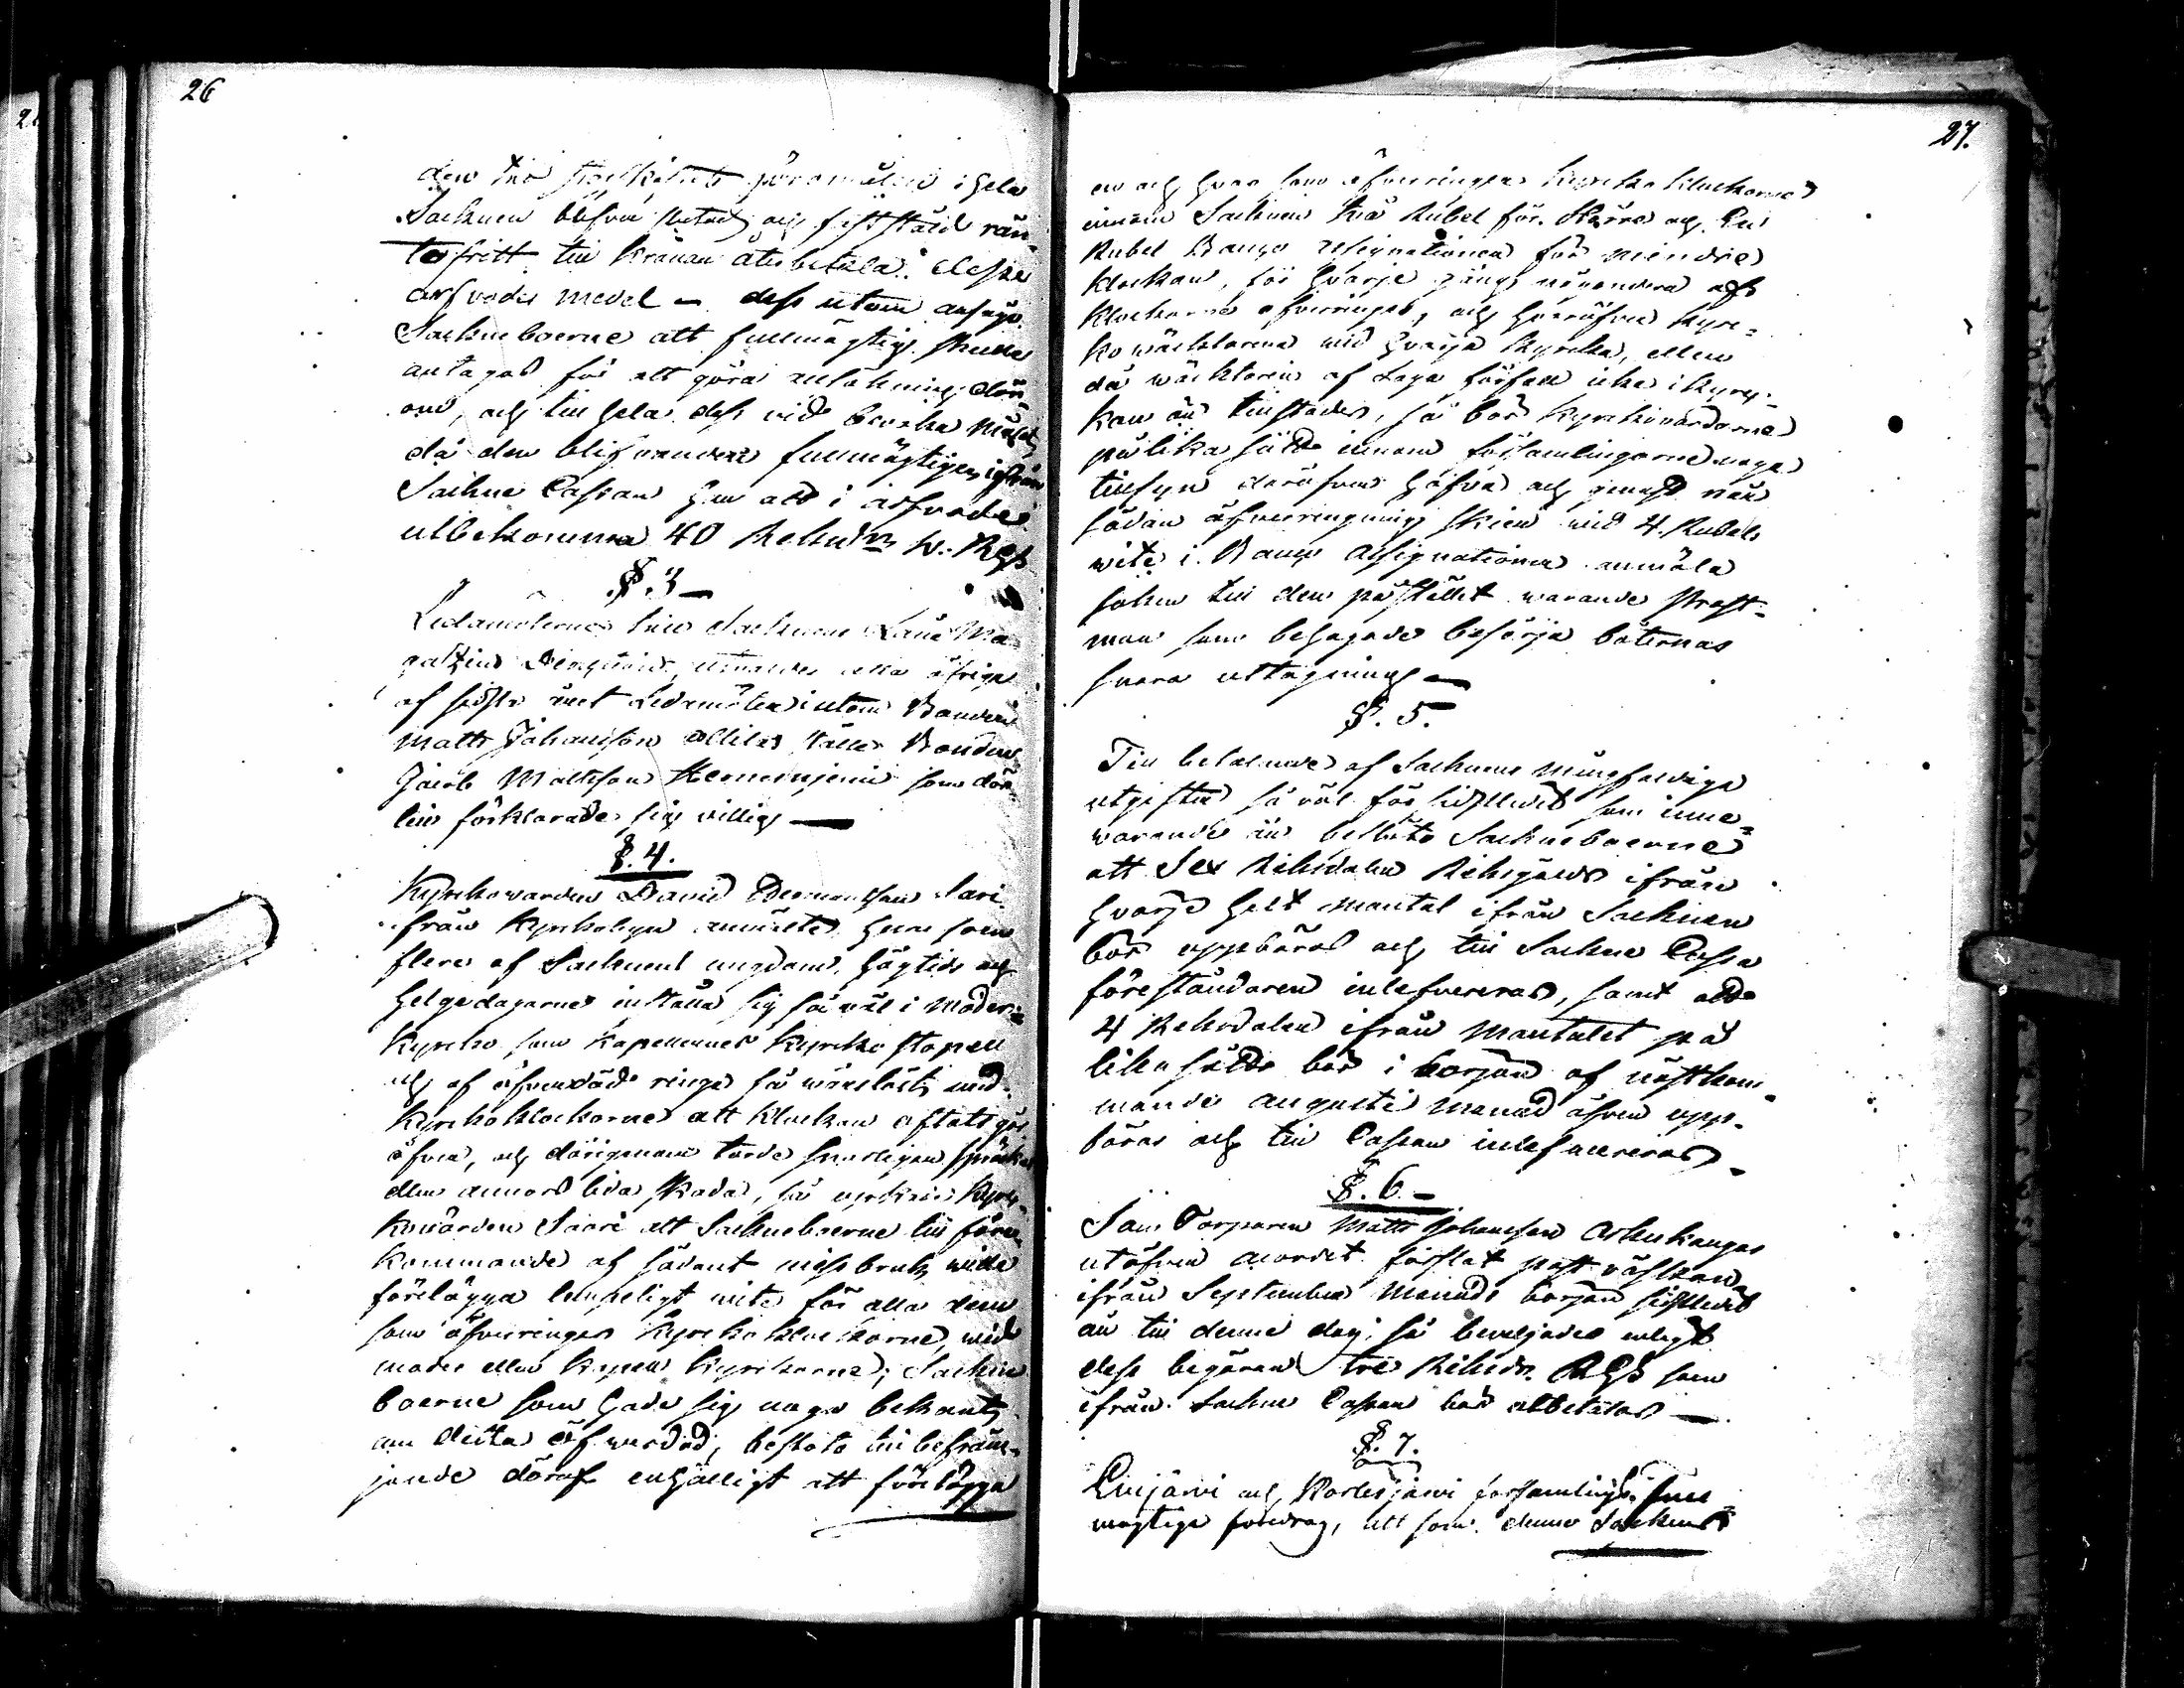 26
den
Socknen blifva och fastställd rän-
tefritt till Kronan återbetala
arfvodes medel – dess utom
Sockneboerne att fullmägtig skulle
antagas för att göra ansökning där-
om, och till hela dess
då den blifvande fullmägtigen ifrån
Sockne Cassan har att i arfvode
utbekomma 40 Riksdr
§.3 –
Ledamöterne Socknens Låne Ma-
gazins alla öfriga
af sidsta året Ledamöter utom Bonden
Matts Johansson ställe Bonden
Jacob Mattsson som där-
till förklarade sig villig –
§.4.
Kyrkovärden David Sari
ifrån Kyrkobyn anmälte huru som
flere af Socknens ungdom, högtids och
helgedagarne inställa sig så väl i Moder-
kyrko som Kapellernes Kyrko stapell
och af öfverdåd ringa så vårdslöst med
Kyrkoklockorne att klockan oftast går
öfver, och därigenom torde snarligen spricka
eller annars lida skada, så Kyrk-
kovärden Saari att Socknboerne till före-
kommande af sådant missbruk wille
förelägga lämpeligt wite för alla dem
som öfverringer Kyrkoklockorne, wid
moder eller Kapell Kyrkorne; Sockne
boerne som hade sig noga bekant
om detta öfverdåd, beslöto till befräm-
jande däraf enhälligt att förelägga
27.
en och hvar som öfverringer Kyrko klockorne
innom Socknen två Rubel för Större och En
Rubel Banco Assignationer för mindre
klockan, för hvarje gång någondera af
klockorne öfverringes, och häröfver Kyr-
ko wäktarena wid hvarje Kyrka, eller
då wäktaren af Laga förfall icke i Kyr-
kan är tillstädes, så bör Kyrkovärdarne
på lika sätt innom församlingarne noga
tillsyn däröfver hafva och genast när
sådan öfverringning skier wid 4. Rubels
wite i Banco Assignationer anmäla
saken till den på stället warande Krofft-
man som behagade besörja böternas
snara uttagning –
§.5.
Till betalande af Socknens mångfaldiga
utgifter så väl för sidstledit som inne-
warande år beslöto Socknebоerne
att Sex Riksdaler Riksgälds ifrån
hvarje helt mantal ifrån Socknen
bör uppbäras och till Sockne Cassa
föreståndaren inlefvereras, samt att
4 Riksdaler ifrån Mantalet på
lika sätt bör i början af nästkom-
mande Augusti månad äfven upp-
bäras och till Cassan inlefvereras –
§.6. –
Som Torparen Matts Johansson
utöfver accordet forslat post väskan
ifrån September Månads början sidstledit
än till denne dag, så beviljades enligt
dess begäran tre Riksdr RGs som
ifrån Sockne Cassan bör utbetalas –
§.7.
Evijärvi och Kortesjärvi församlings full-
mägtige föredrog, att som denne Socknens